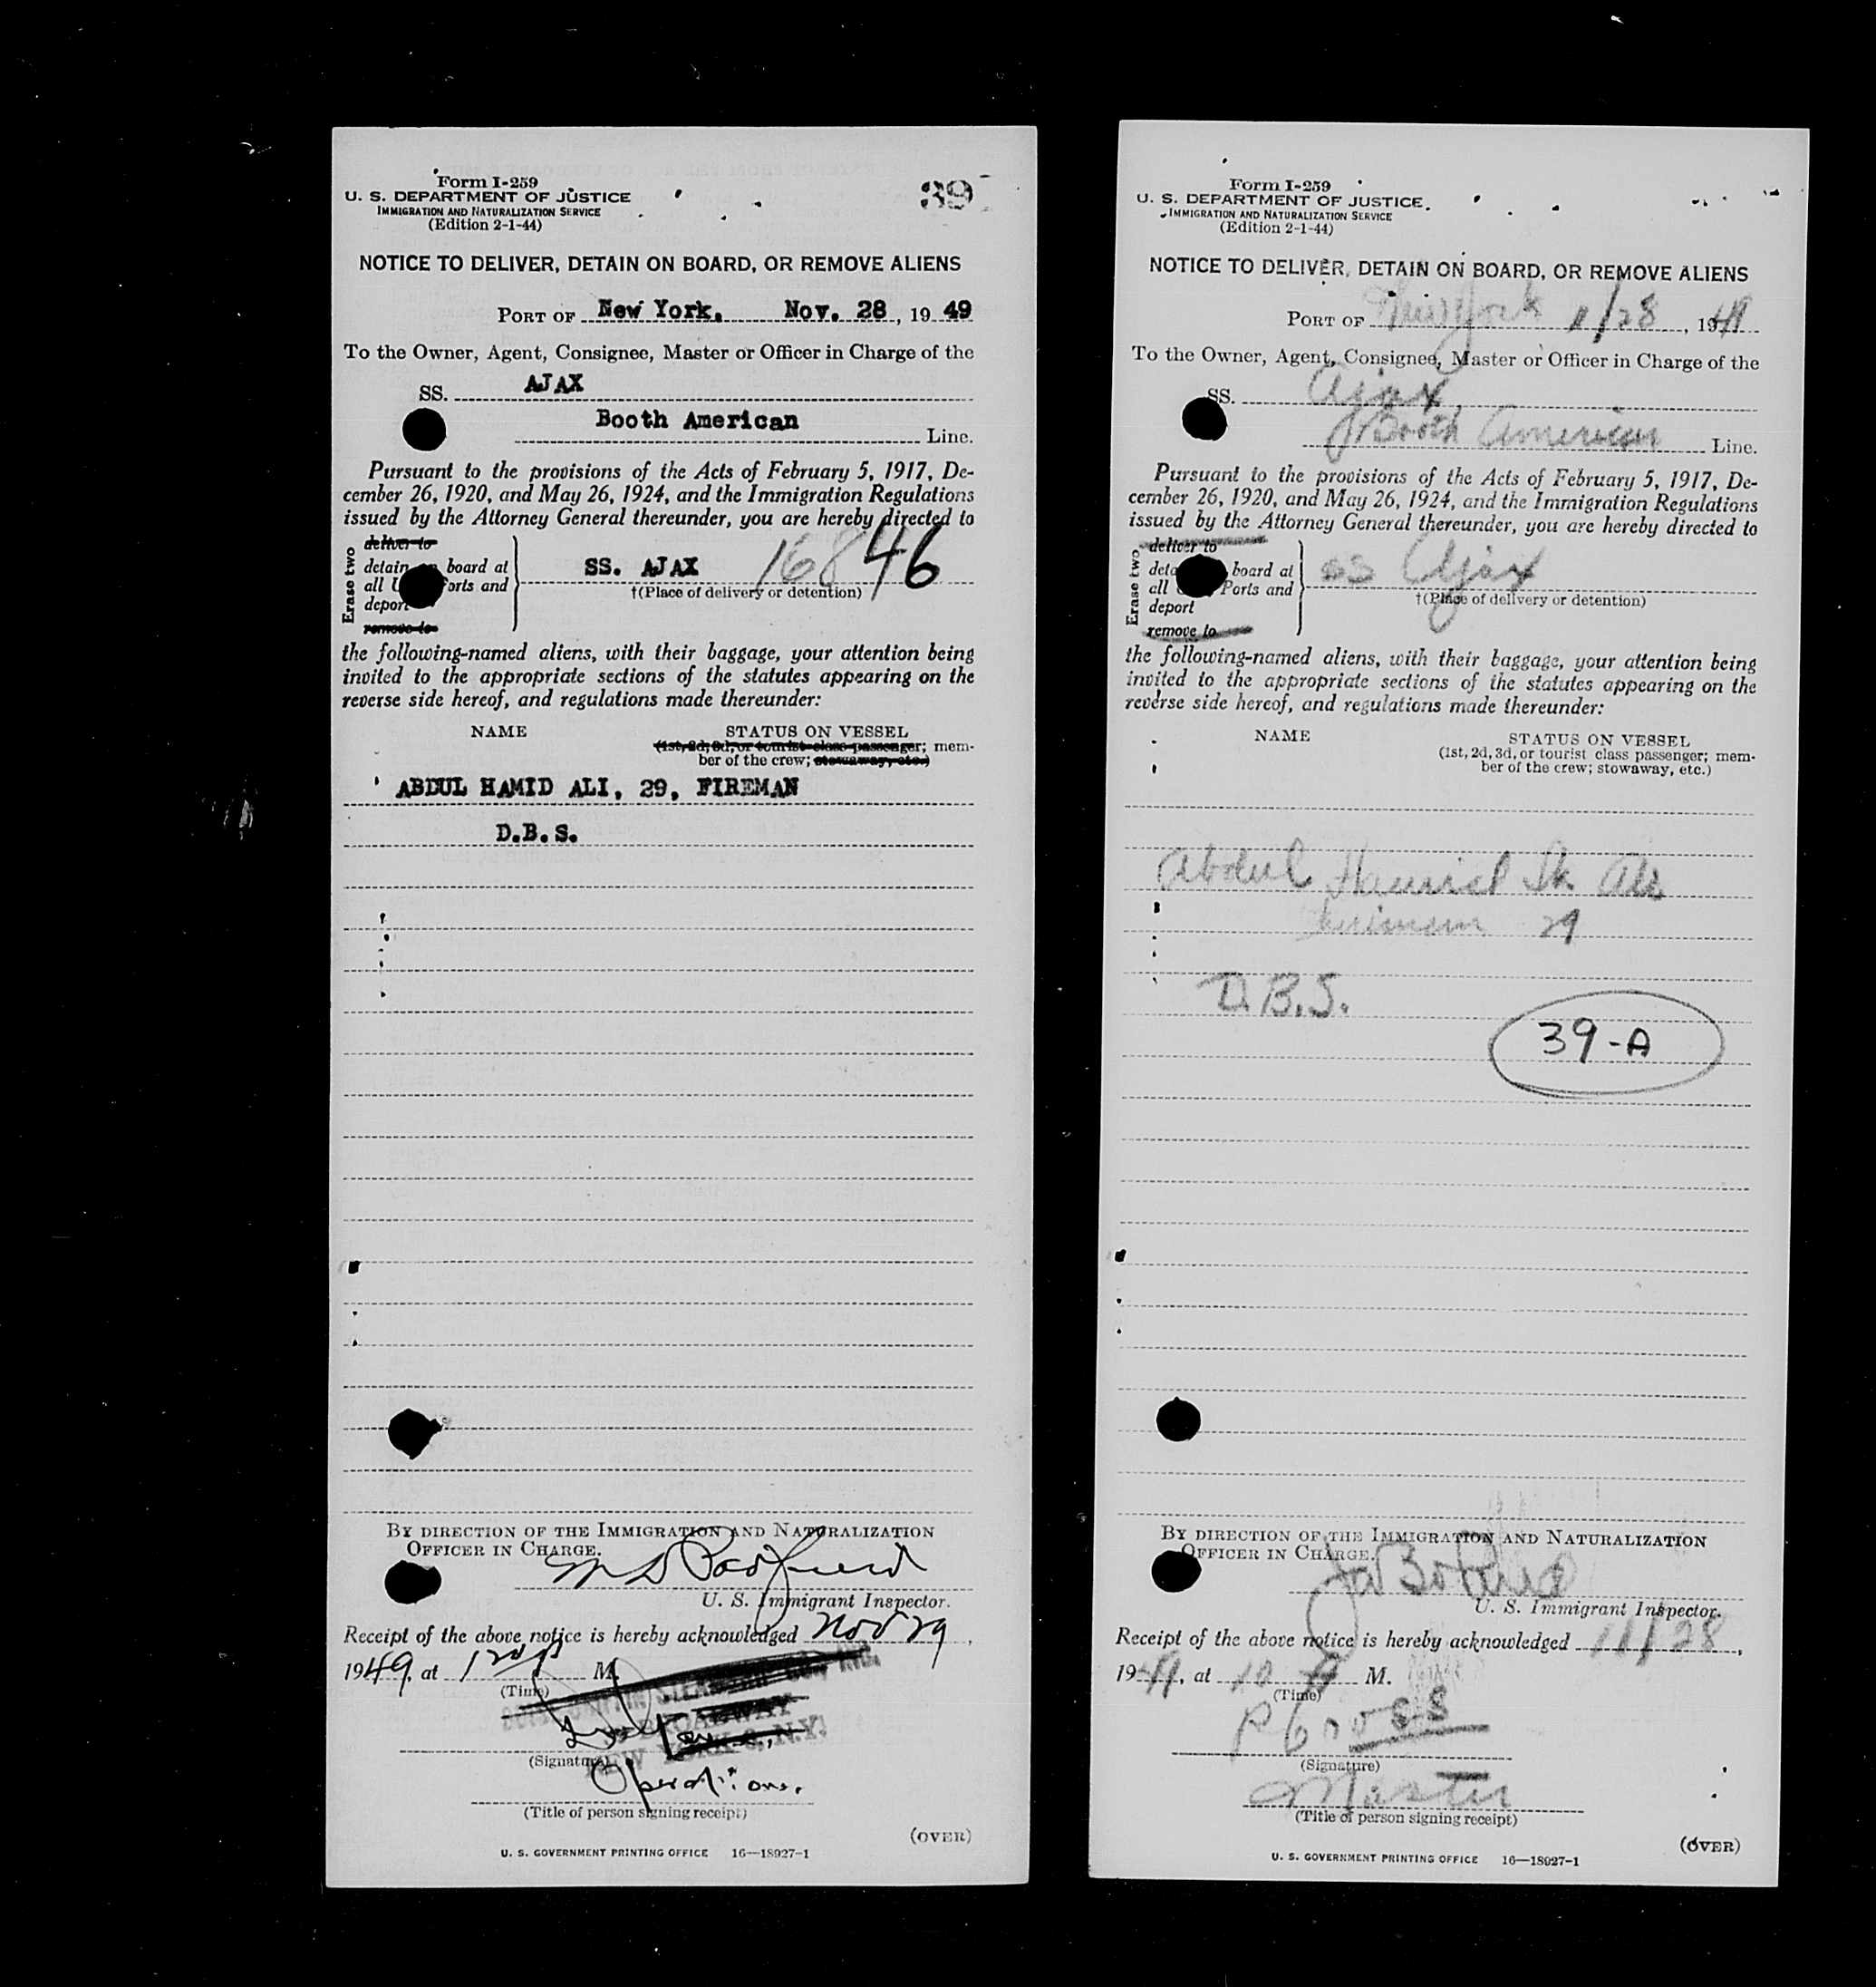 Form I-259
U. S. DEPARTMENT OF JUSTICE
IMMIGRATION AND NATURALIZATION SERVICE
(Edition 2-1-44)
39
NOTICE TO DELIVER, DETAIN ON BOARD, OR REMOVE ALIENS
PORT OF New York, Nov. 28, 19 49
To the Owner, Agent, Consignee, Master or Officer in Charge of the
SS. AJAX
Booth American Line.
Pursuant to the provisions of the Acts of February 5, 1917, De-
cember 26, 1920, and May 26, 1924, and the Immigration Regulations
issued by the Attorney General thereunder, you are hereby directed to
Erase two
deliver to
detain board at
all orts and
deport
remove to
SS. AJAX 16846
†(Place of delivery or detention)
the following-named aliens, with their baggage, your attention being
invited to the appropriate sections of the statutes appearing on the
reverse side hereof, and regulations made thereunder:
NAME STATUS ON VESSEL
(1st, 2d, 3d, or tourist class passenger; mem-
ber of the crew; stowaway, etc.)
ABDUL HAMID ALI, 29, FIREMAN
D.B.S.
BY DIRECTION OF THE IMMIGRATION AND NATURALIZATION
OFFICER IN CHARGE.
U. S. Immigrant Inspector.
Receipt of the above notice is hereby acknowledged Nov 29,
1949, at M.
(Time)
BROADWAY
NEW YORK N.Y.
(Signature)
Operations.
(Title of person signing receipt)
(OVER)
U. S. GOVERNMENT PRINTING OFFICE 16—18927-1
Form I-259
U. S. DEPARTMENT OF JUSTICE
IMMIGRATION AND NATURALIZATION SERVICE
(Edition 2-1-44)
NOTICE TO DELIVER, DETAIN ON BOARD, OR REMOVE ALIENS
PORT OF New York 11/28, 1949
To the Owner, Agent, Consignee, Master or Officer in Charge of the
SS. Ajax
Booth American Line.
Pursuant to the provisions of the Acts of February 5, 1917, De-
cember 26, 1920, and May 26, 1924, and the Immigration Regulations
issued by the Attorney General thereunder, you are hereby directed to
Erase two
deliver to
deta board at
all Ports and
deport
remove to
SS Ajax
†(Place of delivery or detention)
the following-named aliens, with their baggage, your attention being
invited to the appropriate sections of the statutes appearing on the
reverse side hereof, and regulations made thereunder:
NAME STATUS ON VESSEL
(1st, 2d, 3d, or tourist class passenger; mem-
ber of the crew; stowaway, etc.)
Abdul Hamid Sk Ali
29
D.B.S.
39-A
BY DIRECTION OF THE IMMIGRATION AND NATURALIZATION
OFFICER IN CHARGE.
U. S. Immigrant Inspector.
Receipt of the above notice is hereby acknowledged 11/28,
1949, at 10 A M.
(Time)
(Signature)
Master
(Title of person signing receipt)
(OVER)
U. S. GOVERNMENT PRINTING OFFICE 16—18927-1